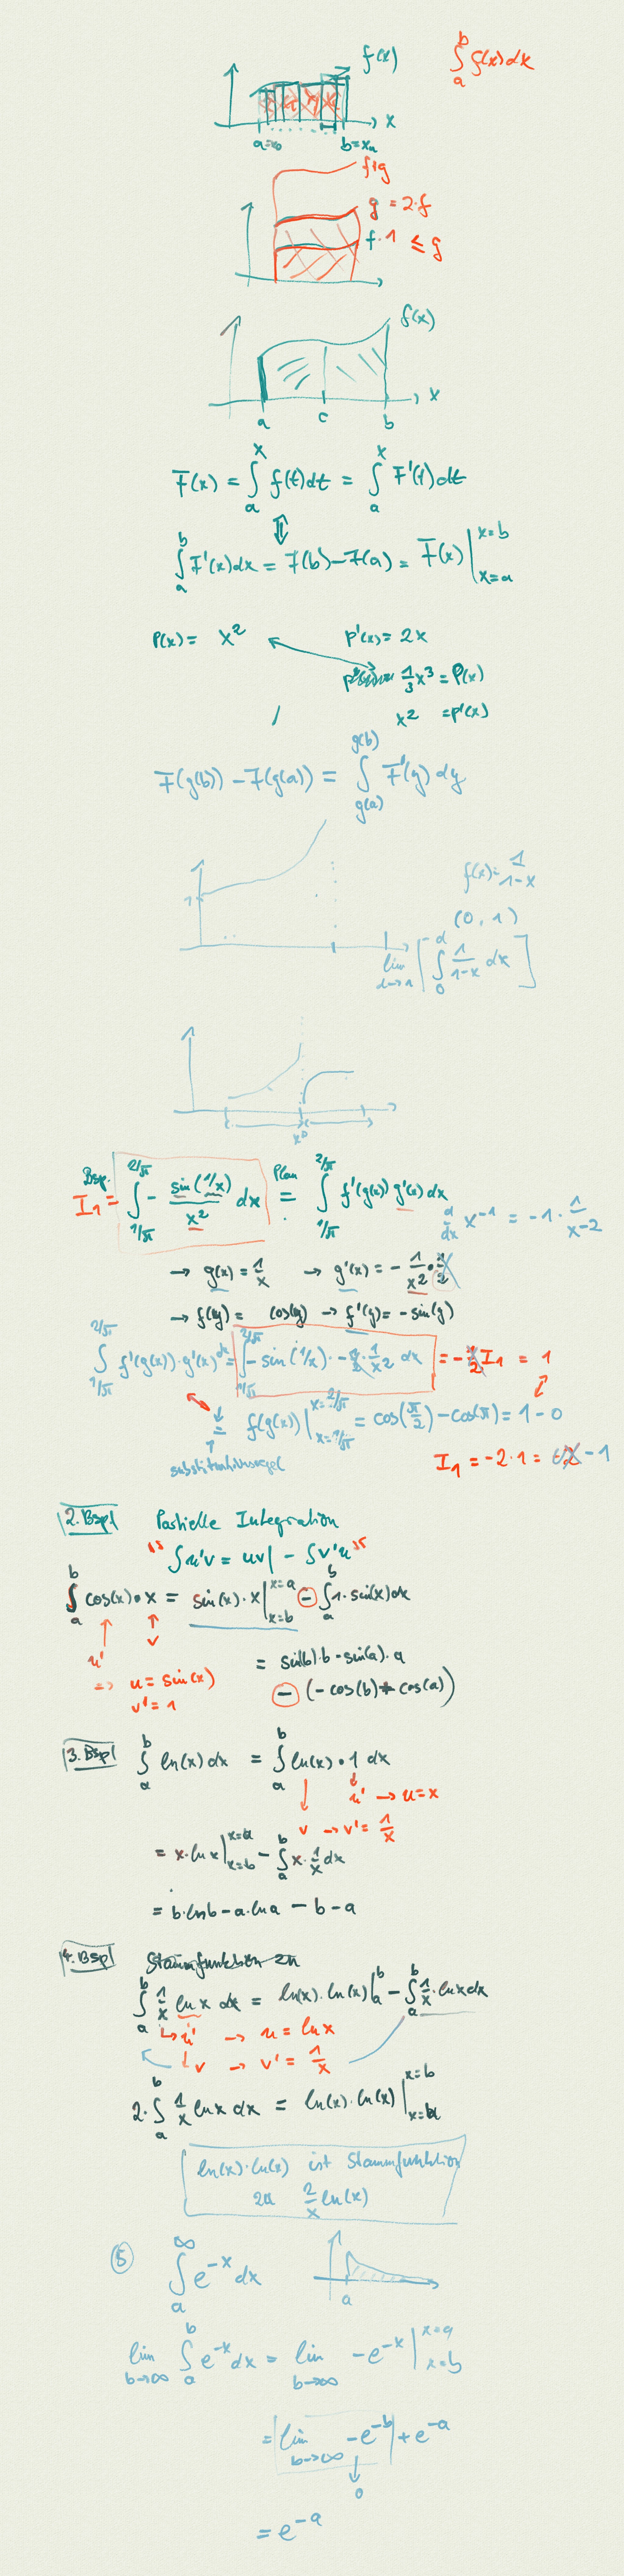 f(x)
∫_a^b f(x)dx
x
a=x₀ b=xₙ
f+g
g = 2·f
f·1 ≤ g
f(x)
x
a c b
F(x) = ∫_a^x f(t)dt = ∫_a^x F'(t)dt
⇕
∫_a^b F'(x)dx = F(b)-F(a) = F(x)|_{x=a}^{x=b}
P(x) = x² p'(x) = 2x
1/3 x³ = P(x)
x² = p'(x)
F(g(b)) - F(g(a)) = ∫_{g(a)}^{g(b)} F'(y) dy
f(x) = 1/(1-x)
1
(0, 1)
lim_{α→1} [∫_0^α 1/(1-x) dx]
x⁰
Bsp.
I₁ = ∫_{1/π}^{2/π} - sin(1/x)/x² dx =^{Plan} ∫_{1/π}^{2/π} f'(g(x)) g'(x) dx
d/dx x⁻¹ = -1 · 1/x-2
→ g(x) = 1/x → g'(x) = - 1/x²
→ f(y) = cos(y) → f'(y) = -sin(y)
∫_{1/π}^{2/π} f'(g(x))·g'(x) dx = ∫_{1/π}^{2/π} -sin(1/x) · - 1/x² dx = - I₁ = 1
= f(g(x))|_{x=1/π}^{x=2/π} = cos(π/2) - cos(π) = 1 - 0
substitutionsregel
I₁ = -2·1 = -1
2. Bspl Partielle Integration
∫u'v = uv| - ∫v'u
∫_a^b cos(x)·x = sin(x)·x|_{x=b}^{x=a} - ∫_a^b 1·sin(x)dx
u' v
=> u = sin(x)
v' = 1
= sin(b)·b - sin(a)·a
- (-cos(b) + cos(a))
3. Bspl ∫_a^b ln(x) dx = ∫_a^b ln(x)·1 dx
u' → u = x
v → v' = 1/x
= x·ln x|_{x=b}^{x=a} - ∫_a^b x·1/x dx
= b·ln b - a·ln a - b - a
4. Bspl Stammfunktion zu
∫_a^b 1/x ln x dx = ln(x)·ln(x)|_a^b - ∫_a^b 1/x·ln x dx
↳ u' → u = ln x
↓ v → v' = 1/x
2·∫_a^b 1/x ln x dx = ln(x)·ln(x)|_{x=a}^{x=b}
ln(x)·ln(x) ist Stammfunktion
zu 2/x ln(x)
⑤ ∫_a^∞ e^{-x} dx
a
lim_{b→∞} ∫_a^b e^{-x} dx = lim_{b→∞} -e^{-x}|_{x=b}^{x=a}
= lim_{b→∞} -e^{-b} + e^{-a}
↓
0
= e^{-a}